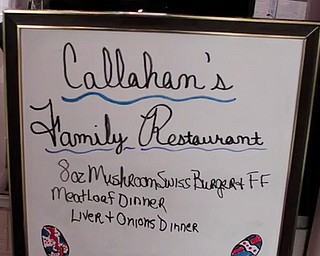 Callahan's
Family Restaurant
8oz Mushroom Swiss Burger + FF
Meatloaf Dinner
Liver + Onions Dinner